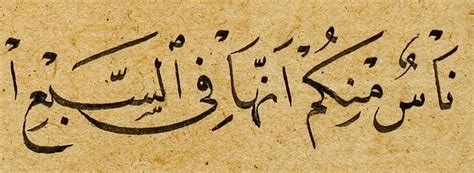 نَاسٌ مِنْكُمْ اَنَّهَا فِى الْسَّبْعِ ا